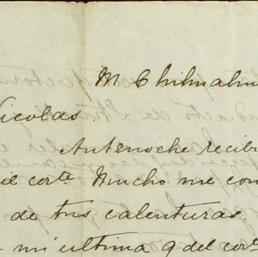 M Chihualm
Nicolas
Antenoche recibi
que corte. Mucho me con
de tus calenturas.
mi ultima 9 del corte